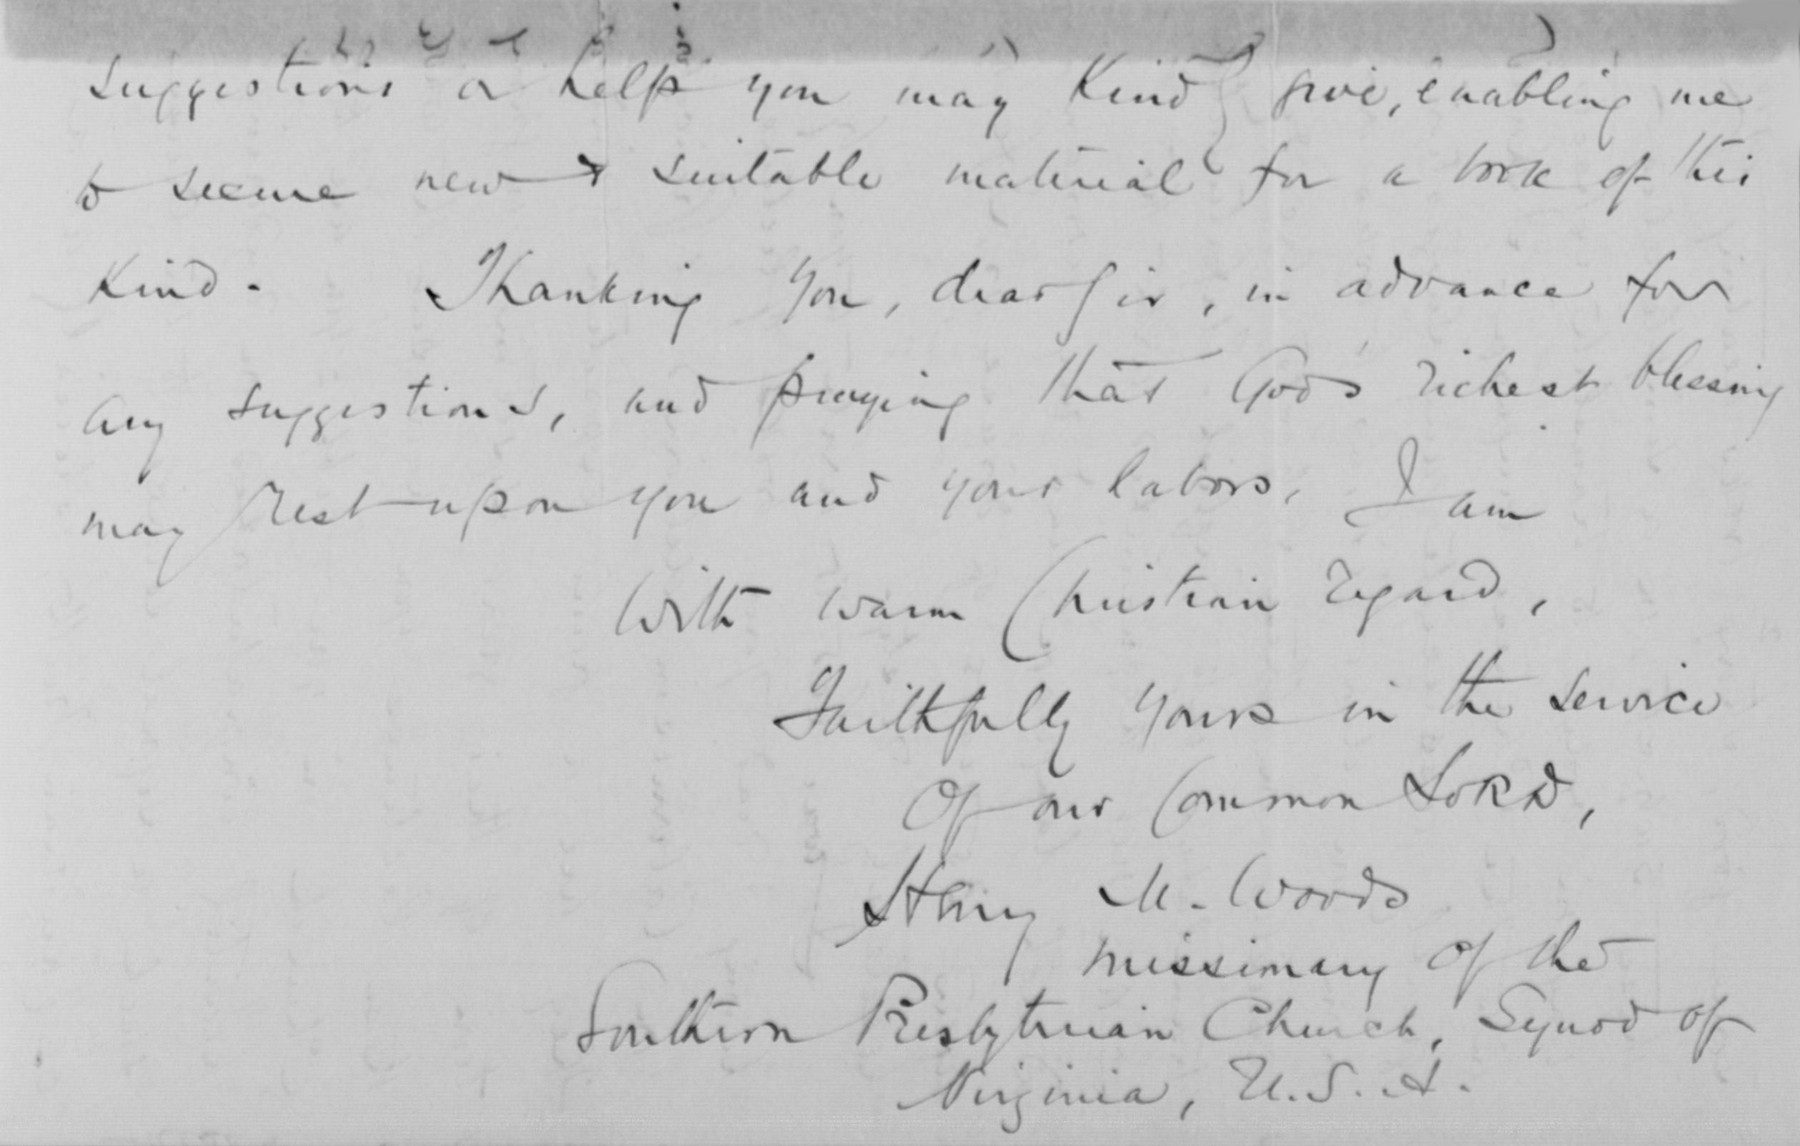 suggestions or help you may kindly give, enabling me
to secure new & suitable material for a book of this
kind. Thanking you, dear Sir, in advance for
any suggestions, and praying that God's richest blessing
may rest upon you and your labors, I am
With warm Christian regard,
Faithfully yours in the service
Of our Common LORD,
Henry M. Woods
missionary of the
Southern Presbyterian Church, Synod of
Virginia, U.S.A.